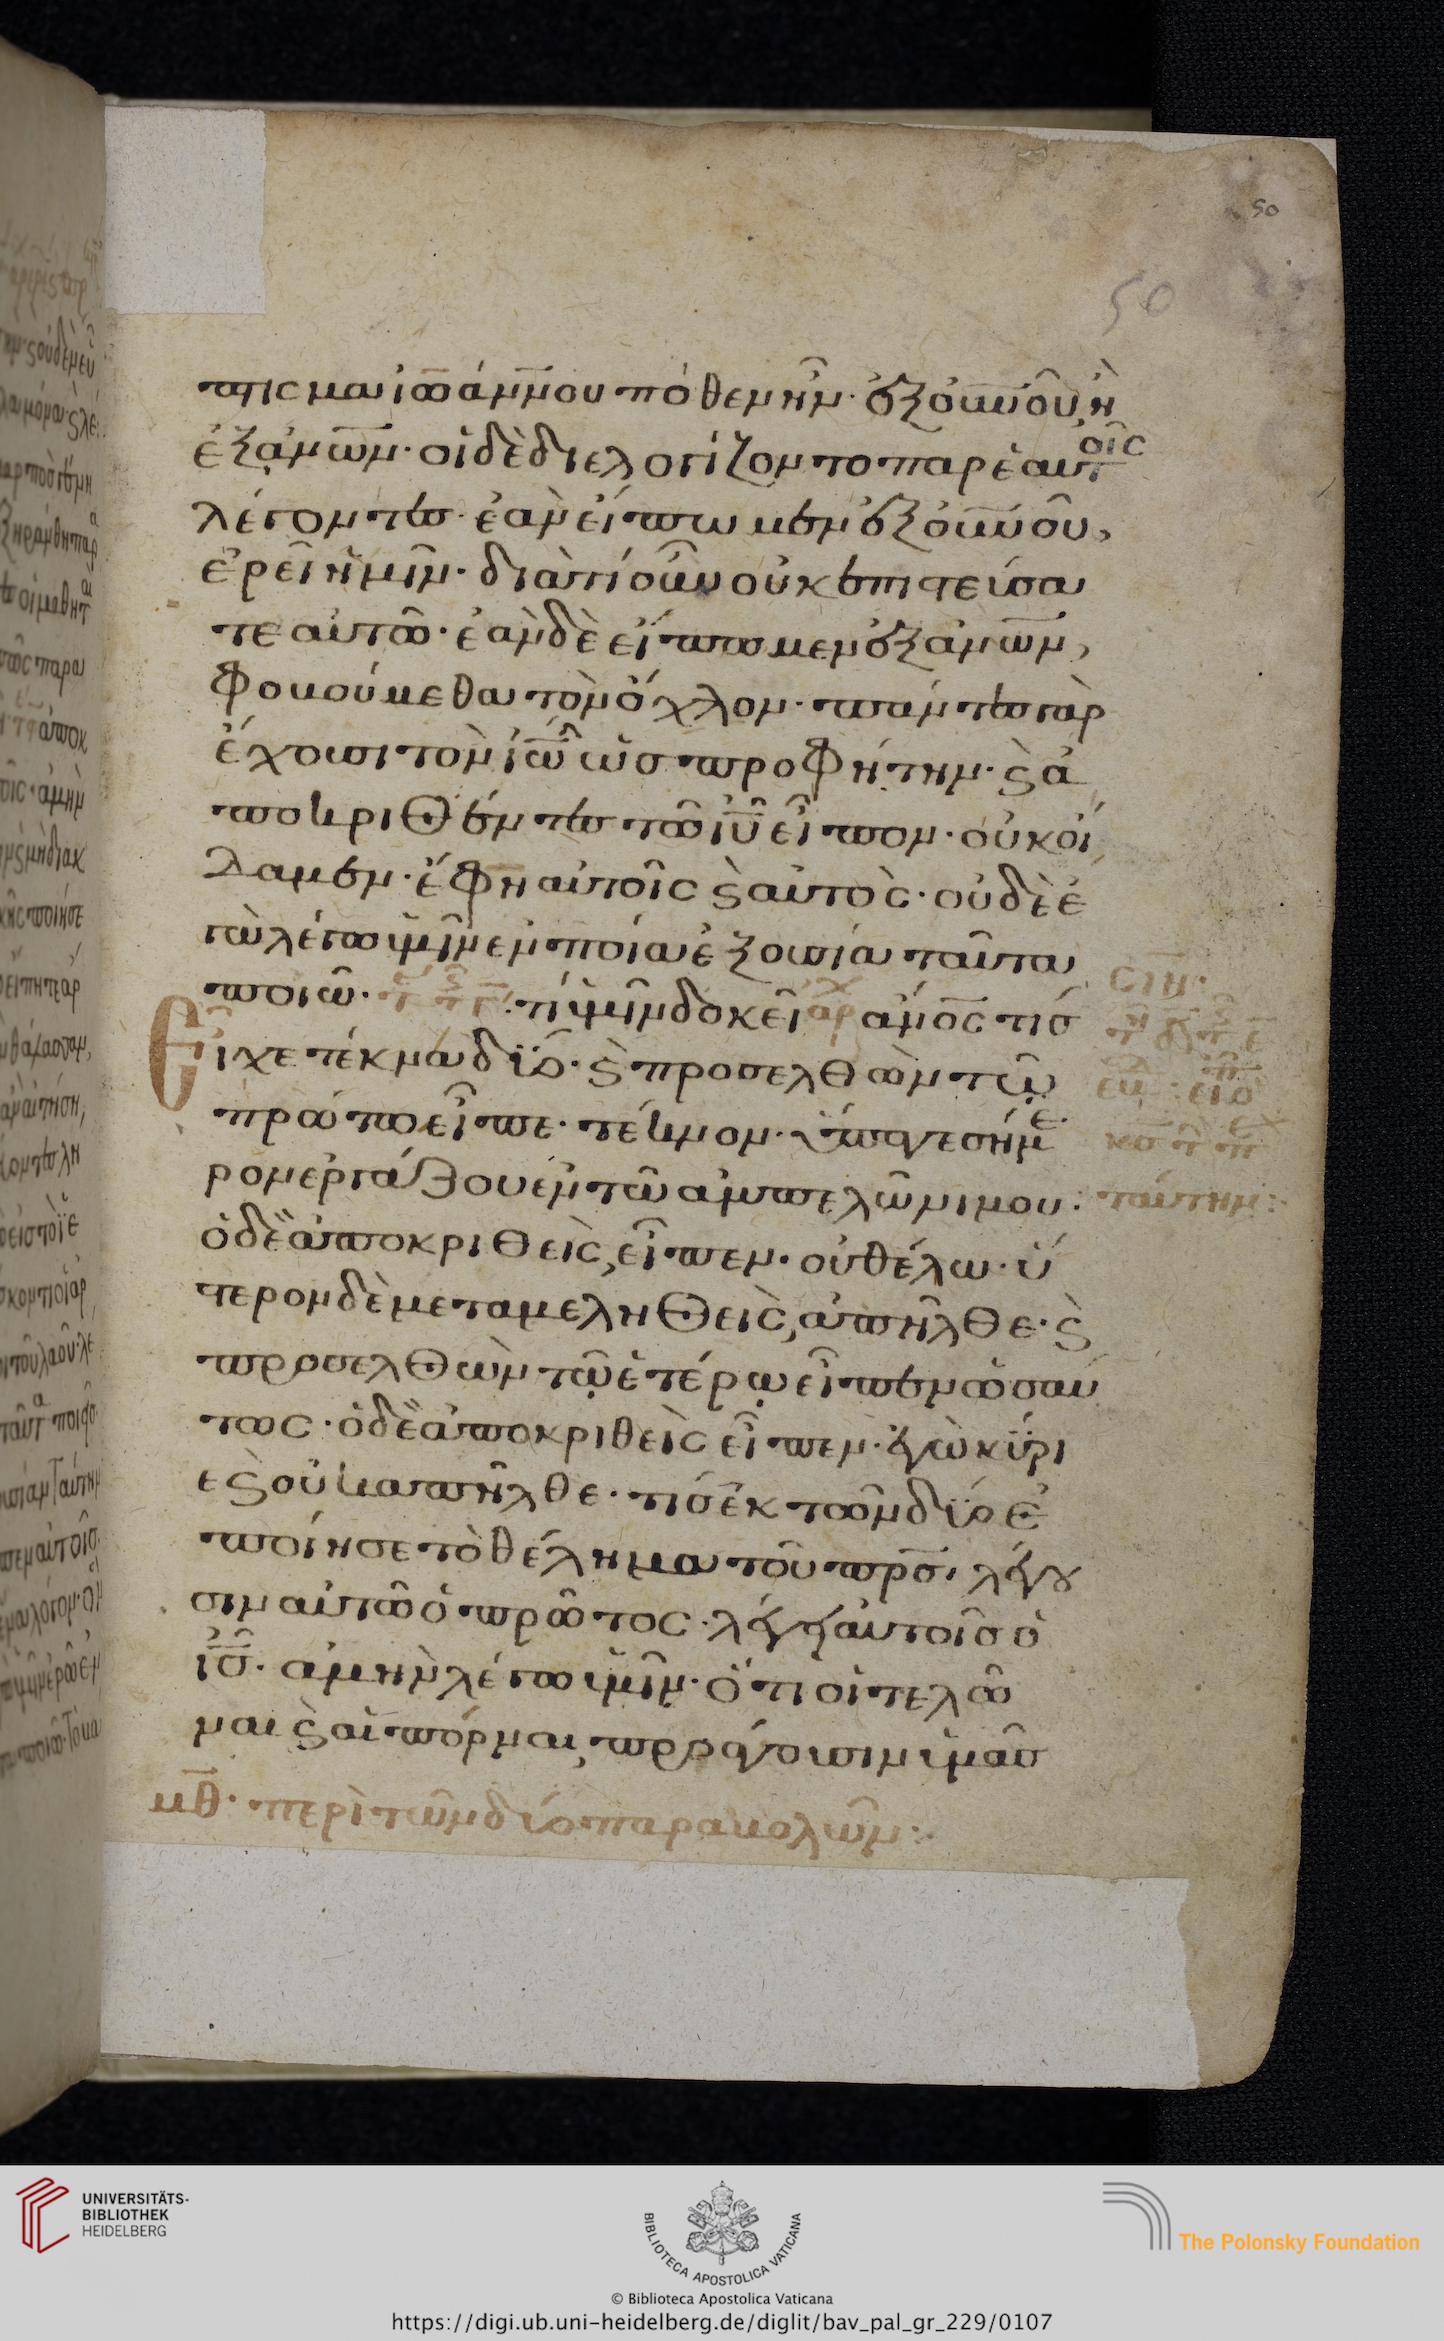 50
50
πτισμα ἰωάννου πόθεν ἦν· ἐξ οὐνοῦ, ἢ
ἐξ ἀνων· οἱ δὲ διελογίζοντο παρ ἑαυτοῖς
λέγοντες· ἐὰν εἴπωμεν ἐξ οὐνοῦ,
ἐρεῖ ἡμῖν· διατί οὖν οὐκ ἐπιστεύσα
τε αὐτῶ· ἐὰν δὲ εἴπωμεν ἐξ ἀνων,
φοβούμεθα τὸν ὄχλον· πάντες γὰρ
ἔχουσι τὸν ἰω ὡς προφήτην· ϛ ἀ
ποκριθέντες τῶ ιυ εἶπον· οὐκ οἴ
δαμεν· ἔφη αὐτοῖς ϛ αὐτὸς· οὐδὲ ἐ
γὼ λέγω ὑμῖν ἐν ποία ἐξουσία ταῦτα
ποιῶ· τί ὑμῖν δοκεῖ ανος τίσ
Εἶχε τέκνα δύο· ϛ προσελθὼν τῶ
πρώτω εἶπε· τέκνον· ὕπαγε σήμε
ρον ἐργάζου ἐν τῶ ἀμπελῶνι μου:
ὁ δὲ ἀποκριθεὶς, εἶπεν· οὐ θέλω· ὕ
στερον δὲ μεταμεληθεὶς, ἀπῆλθε· ϛ
προσελθὼν τῶ ἑτέρω εἶπεν ὡσαύ
τως· ὁ δὲ ἀποκριθεὶς εἶπεν· ἐγὼ κύρι
ε ϛ οὐκ ἀπῆλθε· τίς ἐκ τῶν δύο ἐ
ποίησε τὸ θέλημα τοῦ πρσ· λέγου
σιν αὐτῶ ὁ πρῶτος· λέγει αὐτοῖς ὁ
ις· ἀμὴν λέγω ὑμῖν· ὅτι οἱ τελῶ
ναι ϛ αἱ πόρναι, προάγουσιν ὑμᾶς
μθ· περὶ τῶν δύο παραβολῶν:
ταύτην:
UNIVERSITÄTS-
BIBLIOTHEK
HEIDELBERG
BIBLIOTECA APOSTOLICA VATICANA
The Polonsky Foundation
© Biblioteca Apostolica Vaticana
https://digi.ub.uni-heidelberg.de/diglit/bav_pal_gr_229/0107